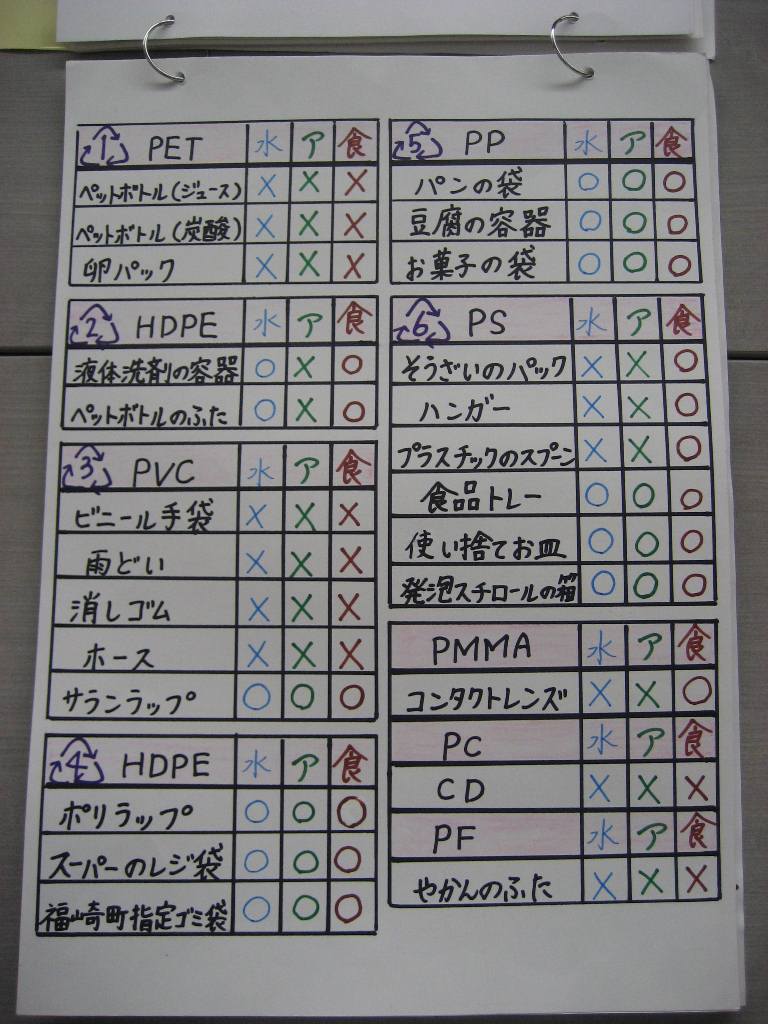 1 PET 水 ア 食
ペットボトル(ジュース) × × ×
ペットボトル(炭酸) × × ×
卵パック × × ×
2 HDPE 水 ア 食
液体洗剤の容器 ○ × ○
ペットボトルのふた ○ × ○
3 PVC 水 ア 食
ビニール手袋 × × ×
雨どい × × ×
消しゴム × × ×
ホース × × ×
サランラップ ○ ○ ○
4 HDPE 水 ア 食
ポリラップ ○ ○ ○
スーパーのレジ袋 ○ ○ ○
福崎町指定ゴミ袋 ○ ○ ○
5 PP 水 ア 食
パンの袋 ○ ○ ○
豆腐の容器 ○ ○ ○
お菓子の袋 ○ ○ ○
6 PS 水 ア 食
そうざいのパック × × ○
ハンガー × × ○
プラスチックのスプーン × × ○
食品トレー ○ ○ ○
使い捨てお皿 ○ ○ ○
発泡スチロールの箱 ○ ○ ○
PMMA 水 ア 食
コンタクトレンズ × × ○
PC 水 ア 食
CD × × ×
PF 水 ア 食
やかんのふた × × ×